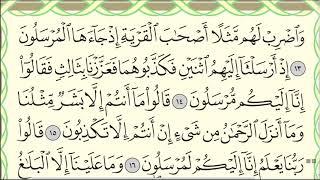 وَٱضْرِبْ لَهُم مَّثَلًا أَصْحَٰبَ ٱلْقَرْيَةِ إِذْ جَآءَهَا ٱلْمُرْسَلُونَ
١٣ إِذْ أَرْسَلْنَآ إِلَيْهِمُ ٱثْنَيْنِ فَكَذَّبُوهُمَا فَعَزَّزْنَا بِثَالِثٍ فَقَالُوٓا۟
إِنَّآ إِلَيْكُم مُّرْسَلُونَ ١٤ قَالُوا۟ مَآ أَنتُمْ إِلَّا بَشَرٌ مِّثْلُنَا
وَمَآ أَنزَلَ ٱلرَّحْمَٰنُ مِن شَىْءٍ إِنْ أَنتُمْ إِلَّا تَكْذِبُونَ ١٥ قَالُوا۟
رَبُّنَا يَعْلَمُ إِنَّآ إِلَيْكُمْ لَمُرْسَلُونَ ١٦ وَمَا عَلَيْنَآ إِلَّا ٱلْبَلَٰغُ